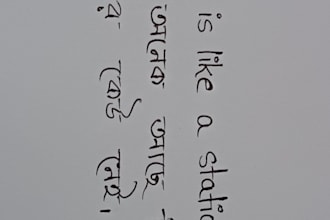 is like a
অনেক আছে
য় কেউ নেই।